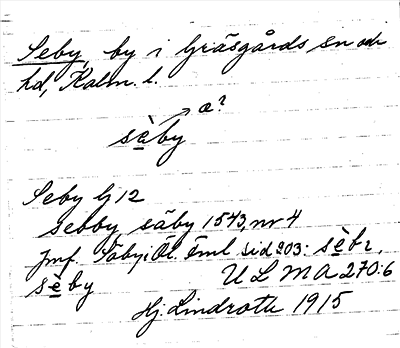 Seby, by i Gräsgårds sn och
hd, Kalm. l.
æ?
sèby
Seby G 12
sebby säby 1543, nr 4
Jmf. Säby i Öl. Fml sid 203: sèbı,
sèby
ULMA 270:6
Hj. Lindroth 1915